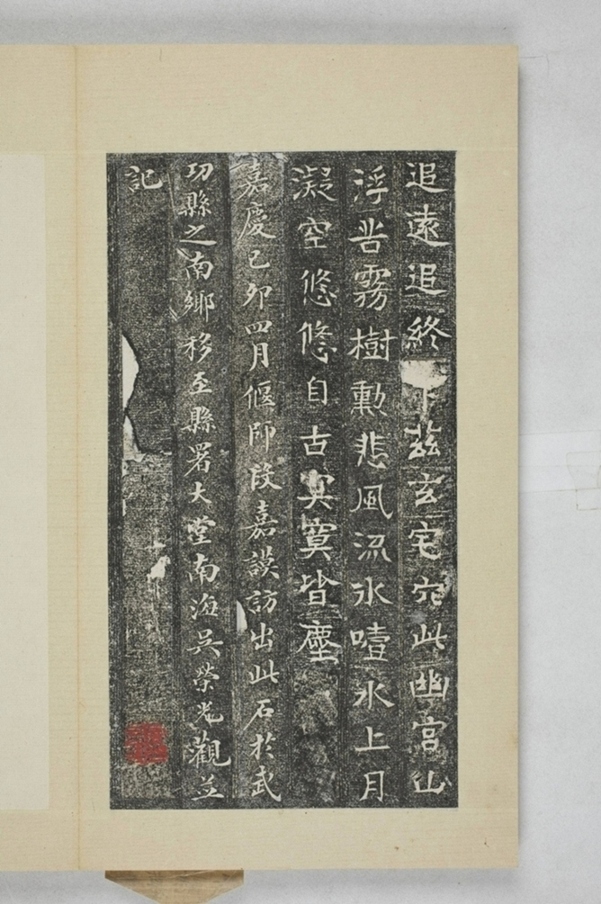 追遠追終卜茲玄宅穴此幽宮山
浮昏霧樹勲悲風流水噎水上月
凝空悠悠自古冥冥皆塵
嘉慶己卯四月偃師段嘉謨訪出此石於武
功縣之南鄉移至縣署大堂南海吳榮光觀並
記